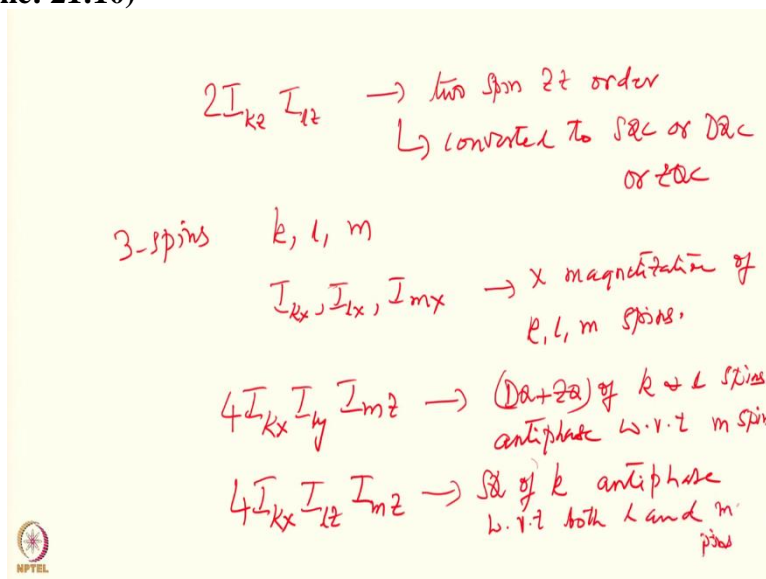 2I_{kz} I_{lz} → two spin zz order
↳ converted to SQC or DQC
or ZQC
3-spins k, l, m
I_{kx}, I_{lx}, I_{mx} → x magnetization of
k, l, m spins.
4I_{kx} I_{ly} I_{mz} → (DQ+ZQ) of k & l spins
antiphase w.r.t m spin
4I_{kx} I_{lz} I_{mz} → SQ of k antiphase
w.r.t both l and m
spins
NPTEL